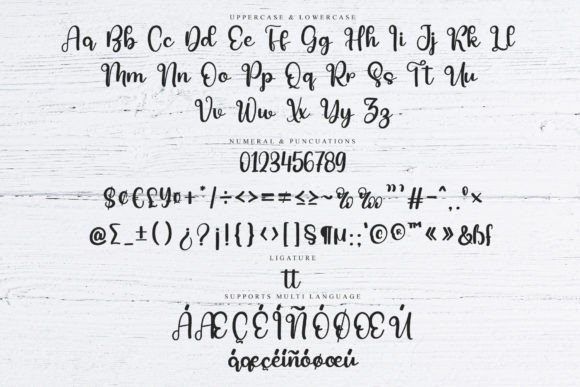 UPPERCASE & LOWERCASE
Aa Bb Cc Dd Ee Ff Gg Hh Ii Jj Rk Ll
Mm Nn Oo Pp Qq Rr Ss Tt Uu
Vv Ww Xx Yy Zz
NUMERAL & PUNCUATIONS
0123456789
$¢€£¥¤+*/÷<>=≠≤≥~‰‰"'#-^,.°×
@∑_±()¿?¡!{}‹›[]§¶µ:;'©®™«»&ßf
LIGATURE
tt
SUPPORTS MULTI LANGUAGE
ÁÆÇÉÍÑÓØŒÚ
áæçéíñóøœú